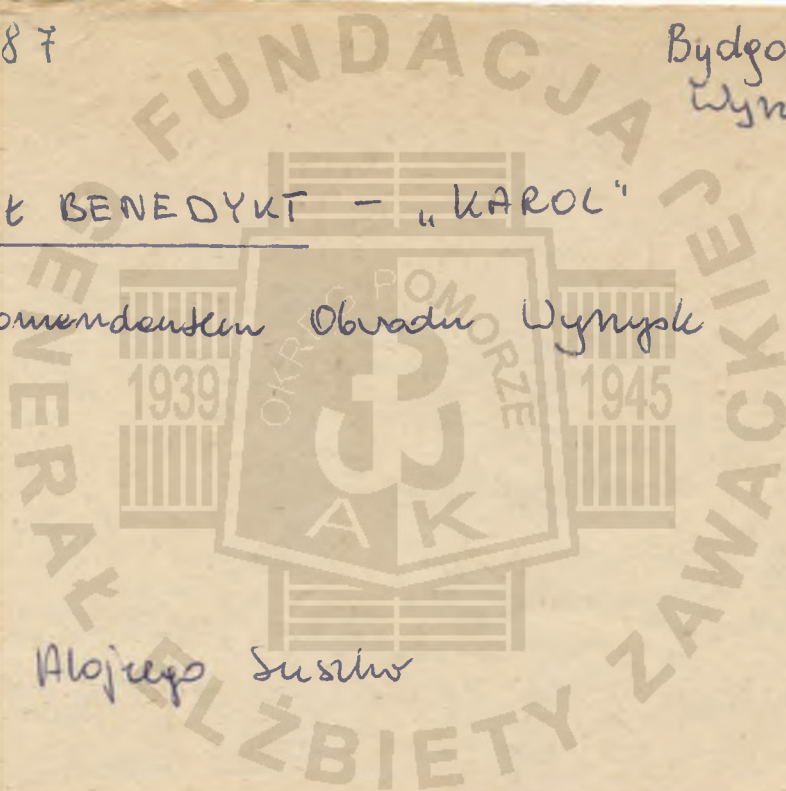 87
Bydgo
Wyrz
Ł BENEDYKT - „KAROL"
omendantem Obwodu Wyrzysk
Alojzego Suszko
FUNDACJA
GENERAŁ ELŻBIETY ZAWACKIEJ
OKRĘG POMORZE
1939
1945
A K